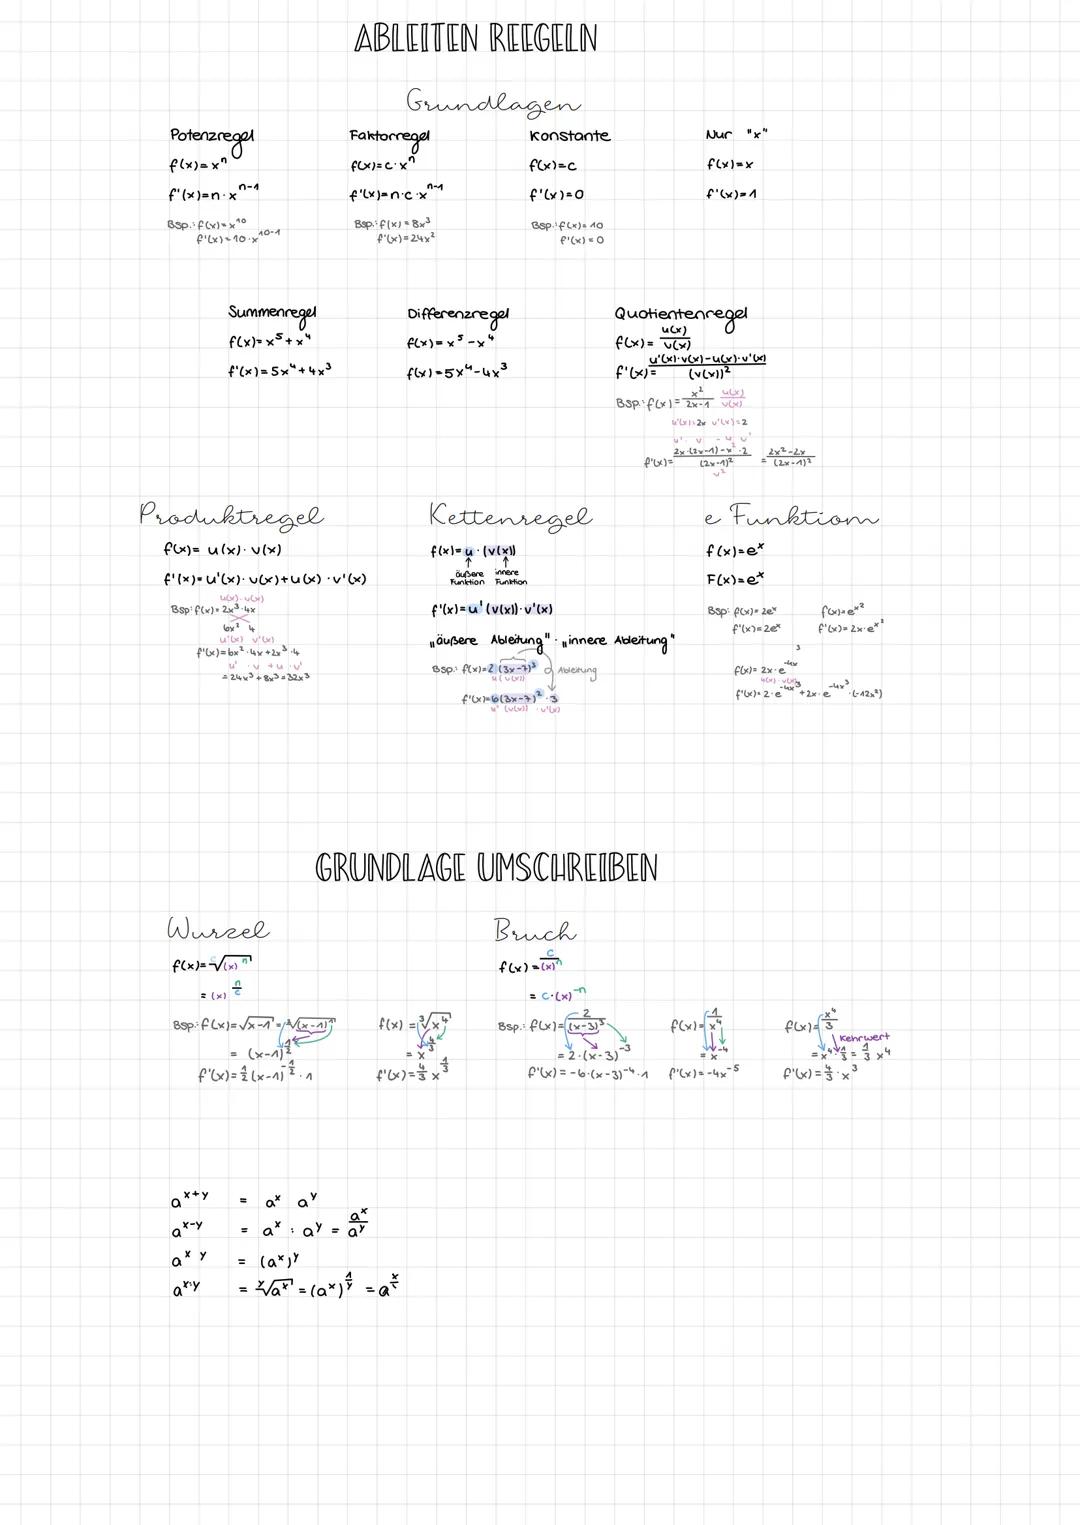 ABLEITEN REEGELN
Grundlagen
Potenzregel
f(x)=xⁿ
f'(x)=n·xⁿ⁻¹
Bsp.: f(x)=x¹⁰
f'(x)=10·x¹⁰⁻¹
Faktorregel
f(x)=c·xⁿ
f'(x)=n·c·xⁿ⁻¹
Bsp.: f(x)=8x³
f'(x)=24x²
Konstante
f(x)=c
f'(x)=0
Bsp.: f(x)=10
f'(x)=0
Nur "x"
f(x)=x
f'(x)=1
Summenregel
f(x)=x⁵+x⁴
f'(x)=5x⁴+4x³
Differenzregel
f(x)=x⁵-x⁴
f(x)=5x⁴-4x³
Quotientenregel
f(x)= u(x)/v(x)
f'(x)= u'(x)·v(x)-u(x)·v'(x)/(v(x))²
Bsp.: f(x)= x²/2x-1 u(x)/v(x)
u'(x)=2x v'(x)=2
u' · v - u v'
f'(x)= 2x·(2x-1)-x²·2/(2x-1)² = 2x²-2x/(2x-1)²
v²
Produktregel
f(x)= u(x)· v(x)
f'(x)=u'(x)·v(x)+u(x)·v'(x)
u(x)·v(x)
Bsp: f(x)=2x³·4x
6x² 4
u'(x) v'(x)
f'(x)=6x²·4x+2x³·4
u' · v + u · v'
=24x³+8x³=32x³
Kettenregel
f(x)=u·(v(x))
äußere innere
Funktion Funktion
f'(x)=u'(v(x))·v'(x)
„äußere Ableitung"·„innere Ableitung"
Bsp.: f(x)=2(3x-7)³ Ableitung
u(v(x))
f'(x)=6(3x-7)²·3
u' (v(x)) · v'(x)
e Funktion
f(x)=eˣ
F(x)=eˣ
Bsp: f(x)=2eˣ
f'(x)=2eˣ
f(x)=e^x²
f'(x)=2x·e^x²
3
f(x)=2x·e^-4x
u(x)·v(x)
f'(x)=2·e^-4x³+2x·e^-4x³·(-12x²)
GRUNDLAGE UMSCHREIBEN
Wurzel
f(x)=ᶜ√(x)ⁿ
=(x)^n/c
Bsp: f(x)=√x-1=²√(x-1)¹
=(x-1)^1/2
f'(x)=1/2(x-1)^-1/2·1
f(x)=³√x⁴
=x^4/3
f'(x)=4/3 x^1/3
Bruch
f(x)=c/(x)ⁿ
=c·(x)⁻ⁿ
Bsp.: f(x)=2/(x-3)³
=2·(x-3)⁻³
f'(x)=-6·(x-3)⁻⁴·1
f(x)=1/x⁴
=x⁻⁴
f'(x)=-4x⁻⁵
f(x)=x⁴/3
Kehrwert
=x⁴·1/3=1/3 x⁴
f'(x)=4/3·x³
a^x+y = aˣ a^y
a^x-y = aˣ : a^y = aˣ/a^y
a^x y = (aˣ)^y
a^x:y = ^y√aˣ = (aˣ)^1/y = a^x/